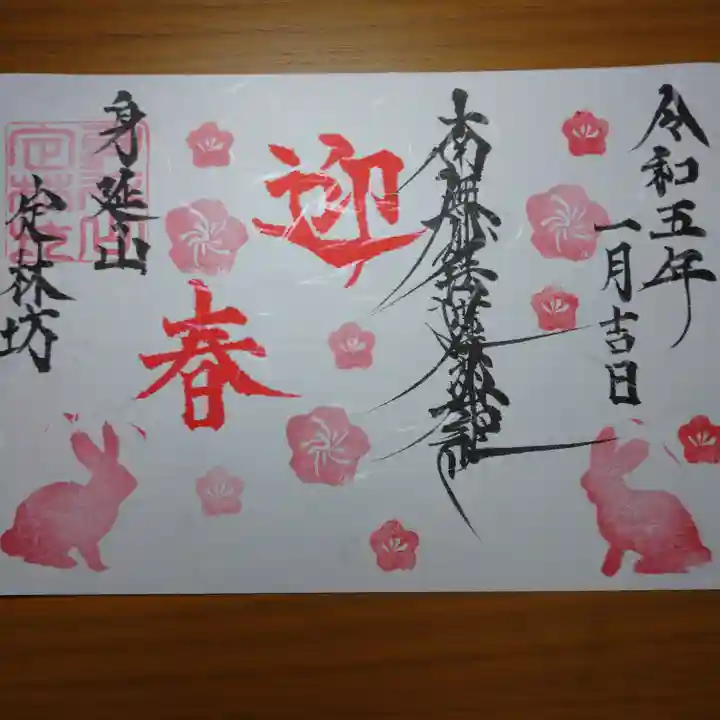 令和五年
一月吉日
南無妙法蓮華経
迎
春
身延山
定林坊